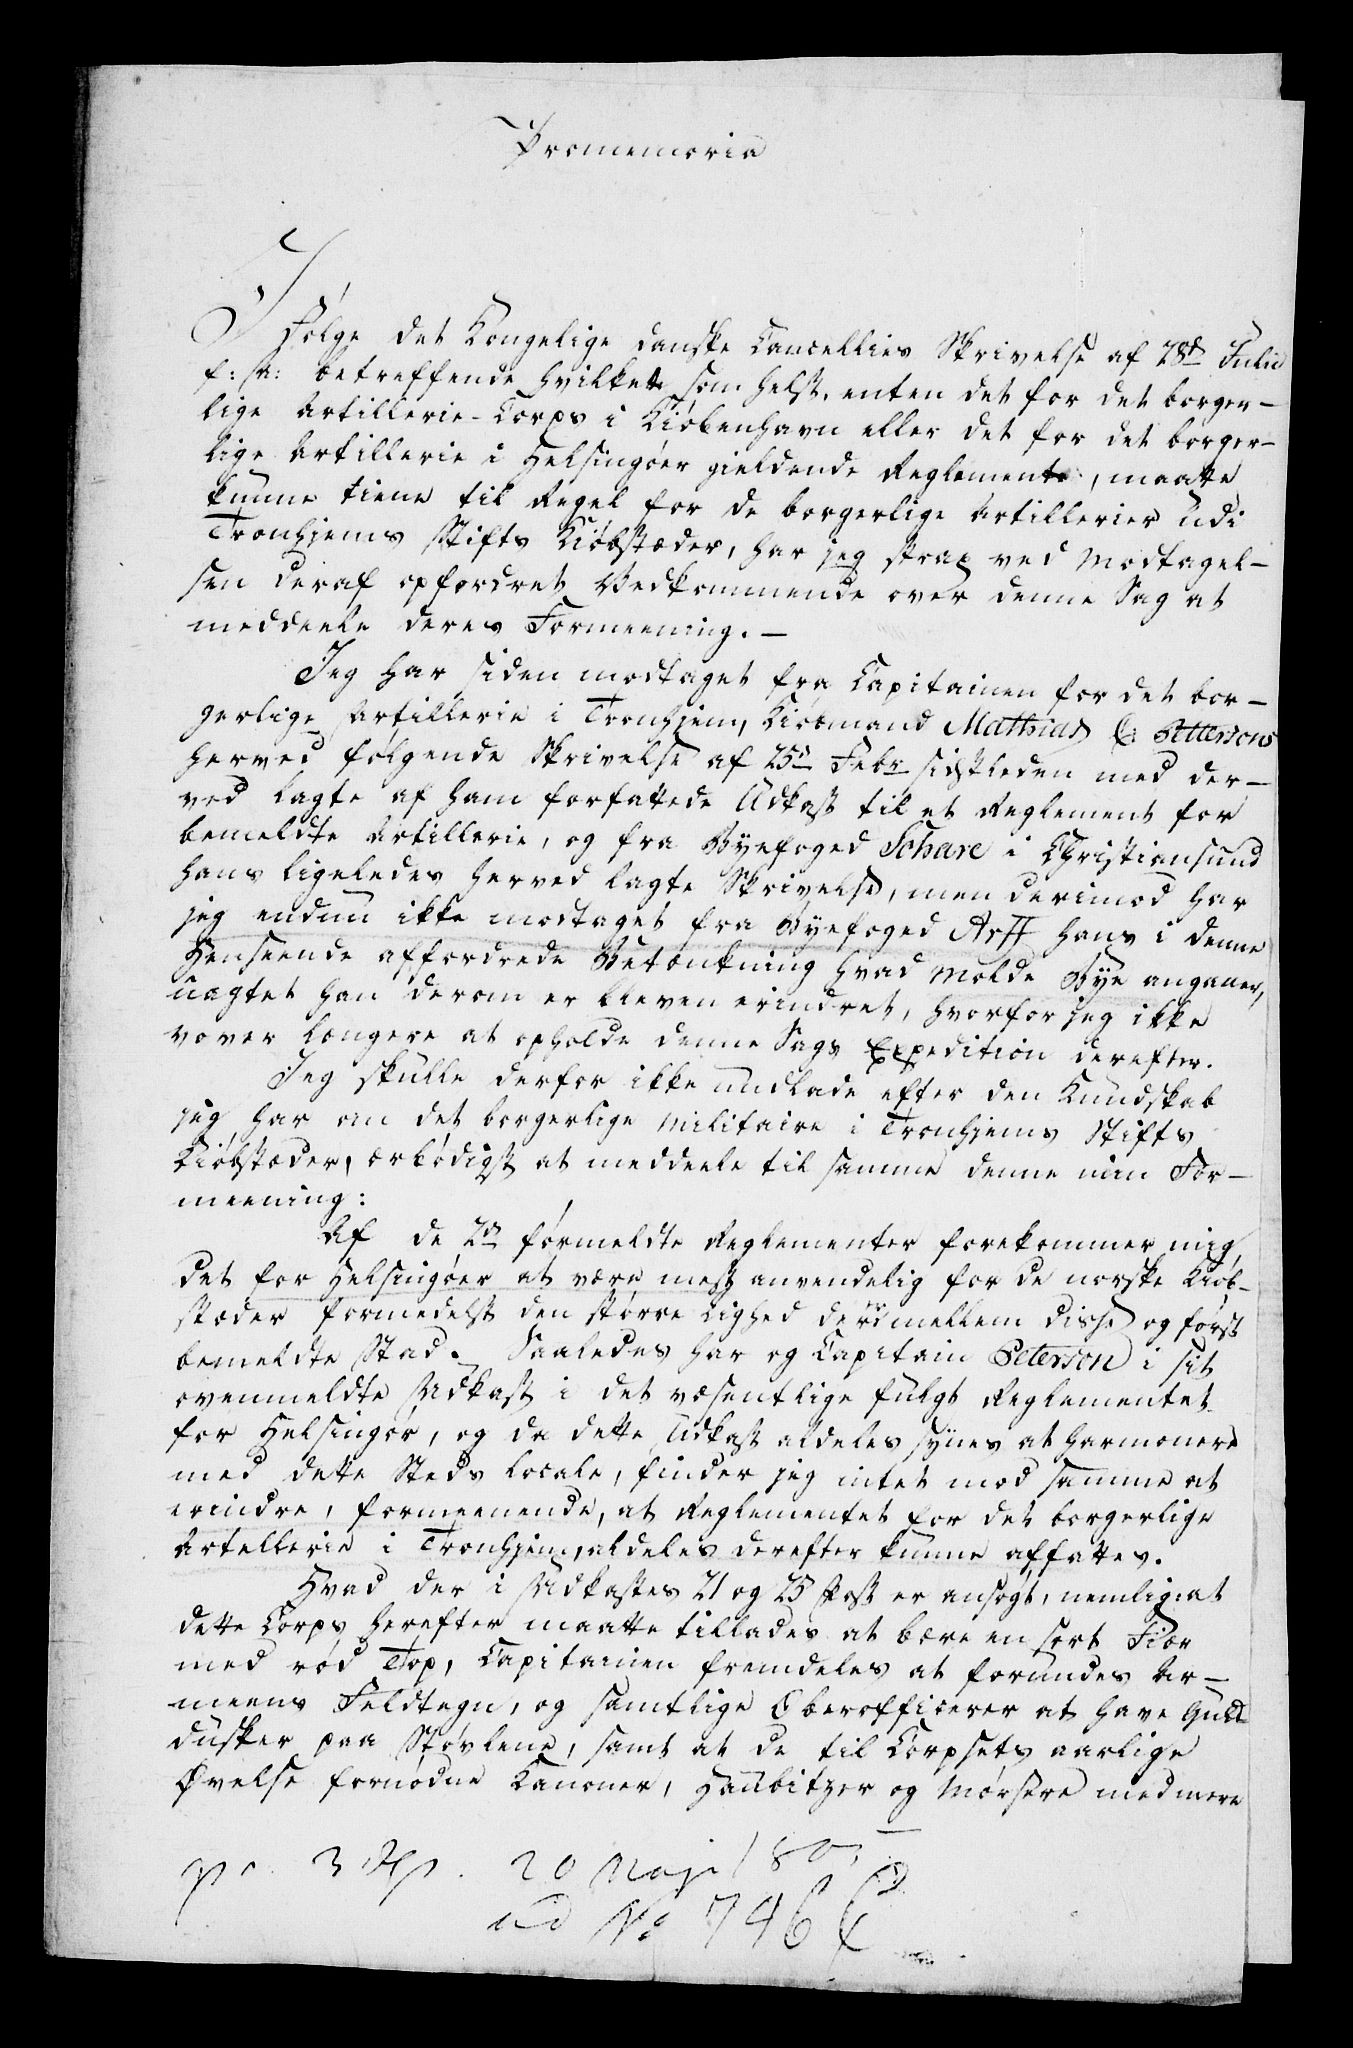 Promemoria
I Følge det Kongelige danske Cancellies Skrivelse af 28de Julii
f: A: betreffende hvilket som helst, enten det for det borger-
lige Artillerie-Corps i Kiøbenhavn eller det for det borger-
lige Artillerie i Helsingøer gieldende Reglement, maatte
kunne tiene til Regel for de borgerlige Artillerier udi
Tronhjems Stifts Kiøbstæder, har jeg strax ved Modtagel-
sen deraf opfordret Vedkommende over denne Sag at
meddeele deres Formeening. -
Jeg har siden modtaget fra Capitainen for det bor-
gerlige Artillerie i Tronhjem, Kiøbmand Mathias Pettersons
herved følgende Skrivelse af 25de Febr sidstleden med der-
ved lagte af ham forfattede Udkast til et Reglement for
bemeldte Artillerie, og fra Byefoged Schare i Christiansund
hans ligeledes herved lagte Skrivelse, men derimod har
jeg endnu ikke modtaget fra Byefoged Arff hans i denne
Henseende affordrede Betænkning hvad Molde Bye angaaer,
uagtet han derom er bleven erindret, hvorfor jeg ikke
vover længere at opholde denne Sags Expedition derefter.
Jeg skulle derfor ikke undlade efter den Kundskab
jeg har om det borgerlige Militaire i Tronhjems Stifts
Kiøbstæder, ærbødigst at meddeele til samme denne min For-
meening:
Af de 2de førmeldte Reglementer forekommer mig,
det for Helsingøer at være mest anvendelig for de norske Kiøb-
stæder formedelst den større Lighed derimellem disse og først
bemeldte Stad. Saaledes har og Capitain Peterson i sit
ovenmeldte Udkast i det væsentlige fulgt Reglementet
for Helsingør, og da dette Udkast aldeles synes at harmonere
med dette Steds Locale, finder jeg intet mod samme at
erindre, formeenende, at Reglementet for det borgerlige
Artellerie i Tronhjem, aldeles derefter kunne affattes.
Hvad der i Udkastes 21 og 25 Post er ansøgt, nemlig: at
dette Corps herefter maatte tillades at bære en sort Fiær
med rød Top, Capitainen fremdeles at forundes Ar-
meens Feldtegn, og samtlige Oberofficerer at have Guld
dusker paa Støvlene, samt at de til Corpsets aarlige
Øvelse fornødne Kanoner, Haubitzer og Mørsere med mere
pr. 3 Dep. 20 Maji 180
ad No 746